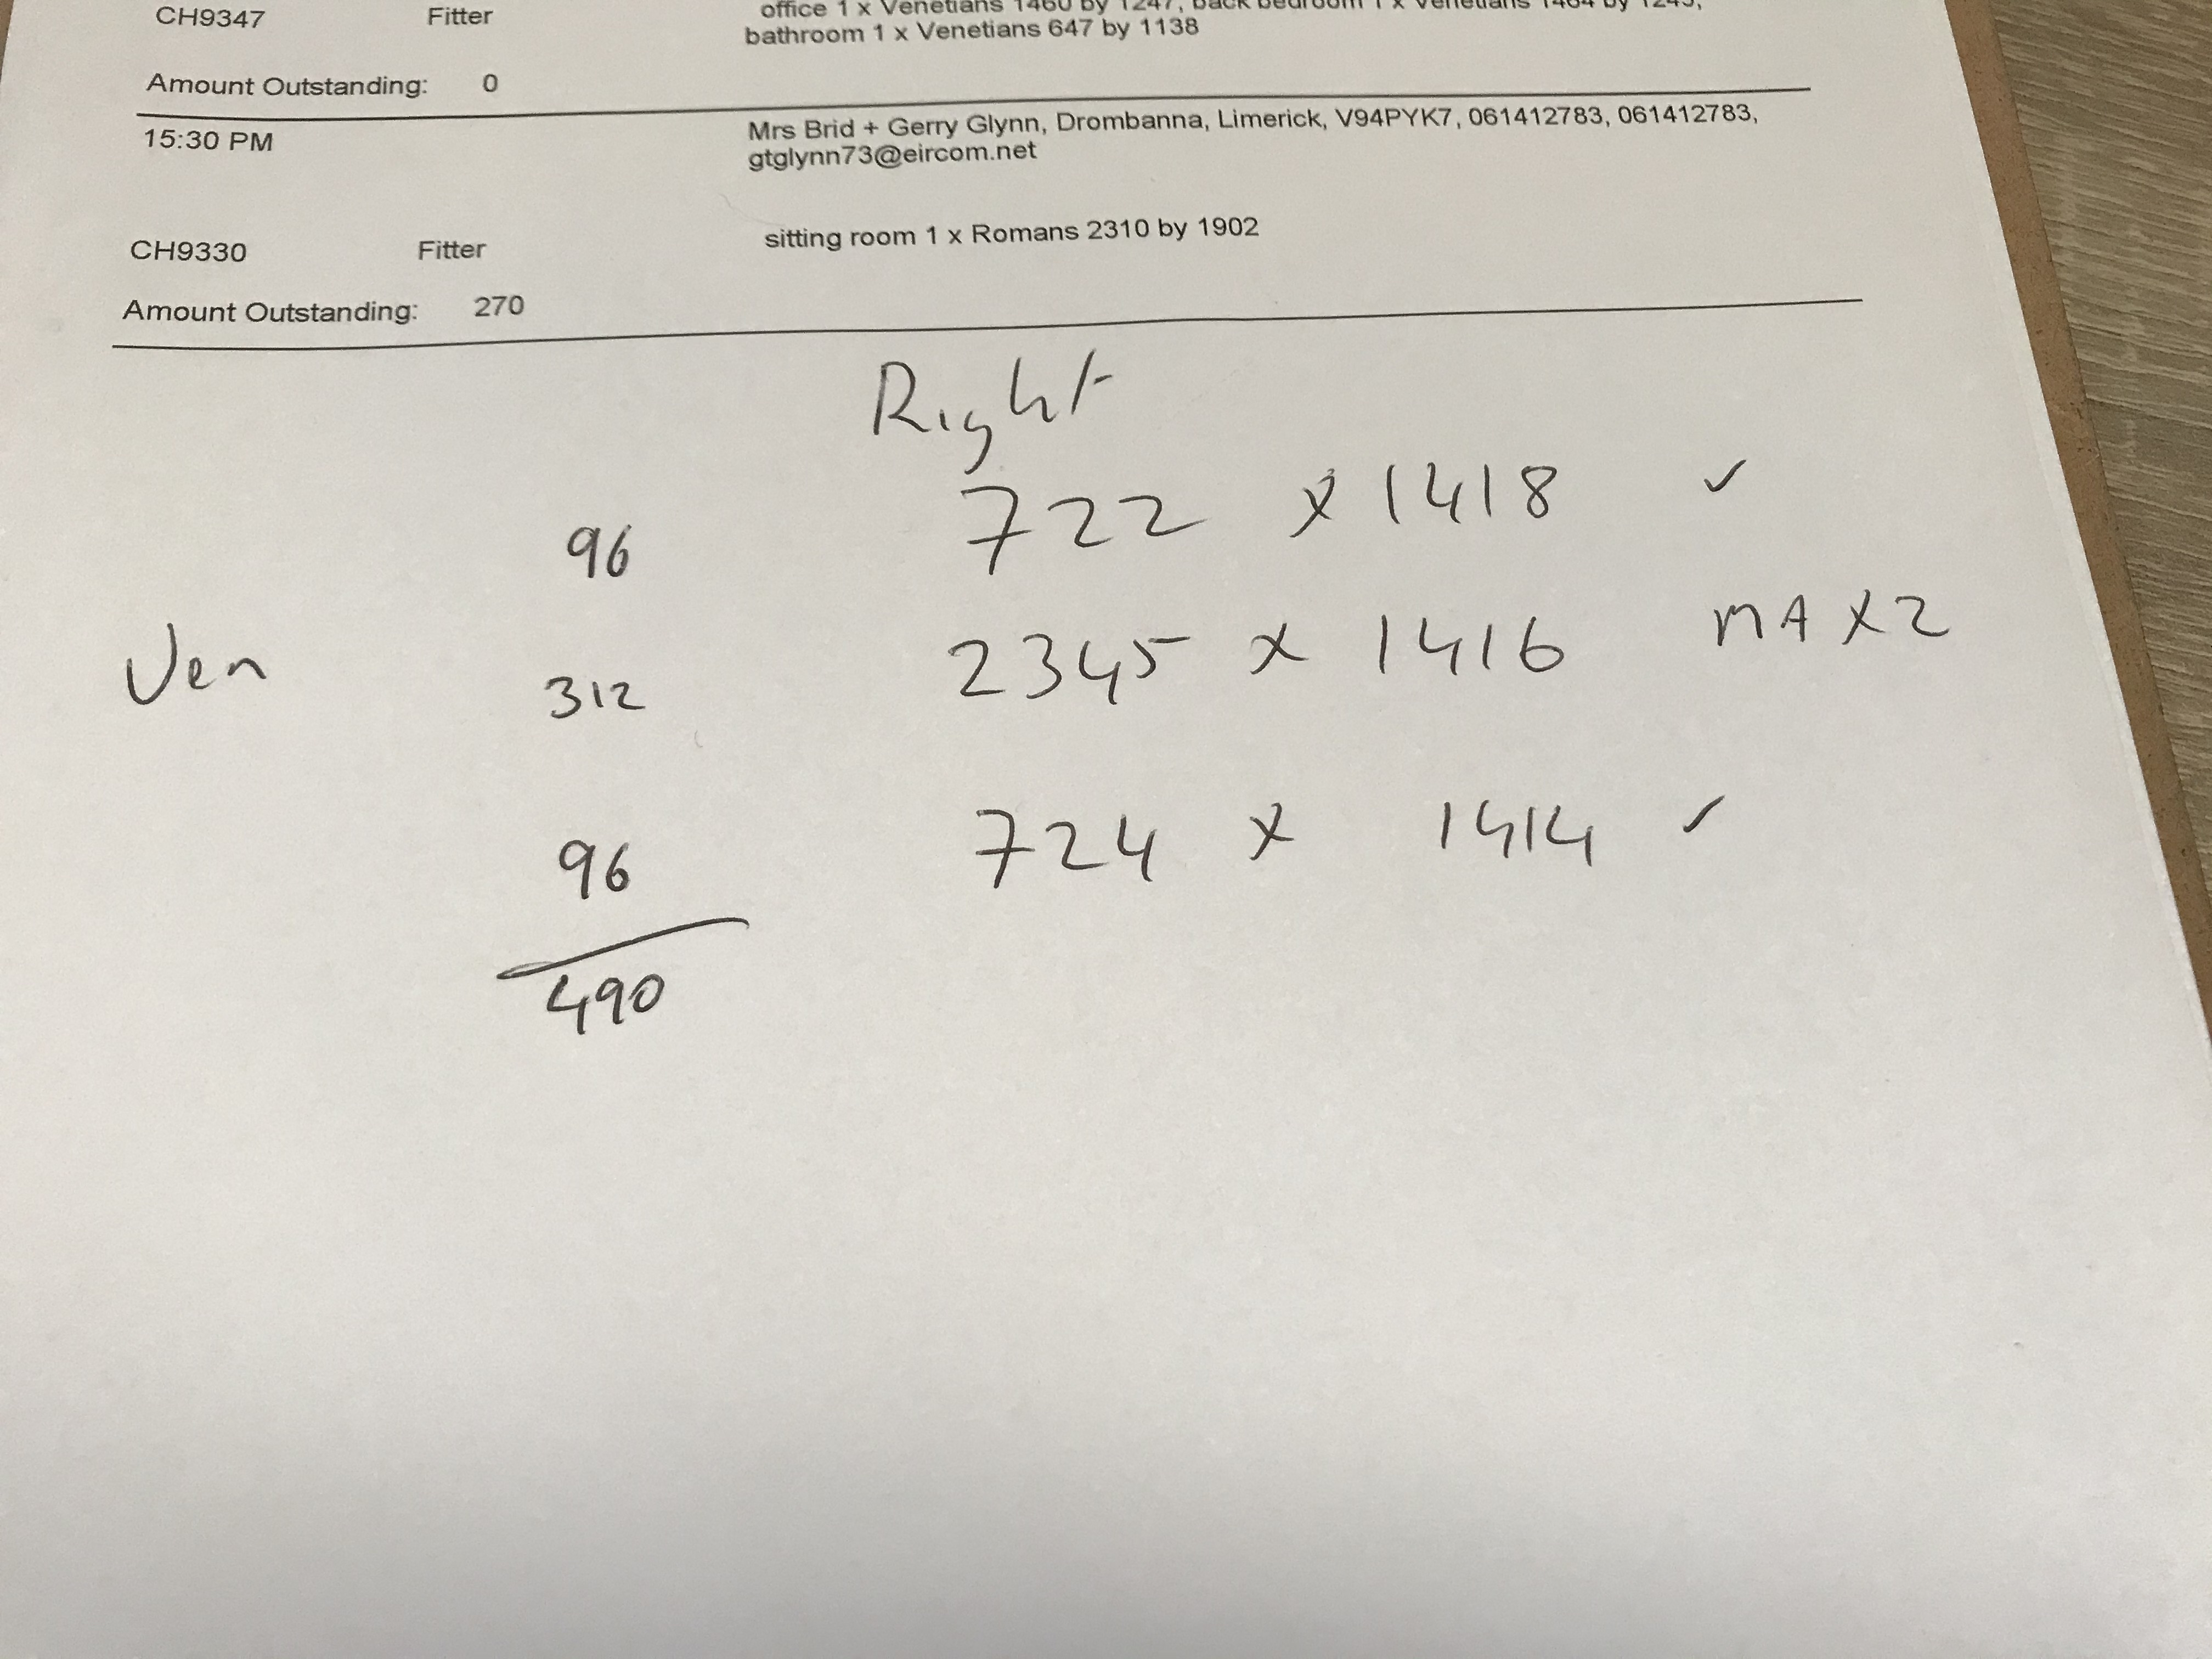 CH9347 Fitter office 1 x Venetians 1460 by 1247, back bedroom 1 x Venetians 1464 by 1245,
bathroom 1 x Venetians 647 by 1138
Amount Outstanding: 0
15:30 PM Mrs Brid + Gerry Glynn, Drombanna, Limerick, V94PYK7, 061412783, 061412783,
gtglynn73@eircom.net
CH9330 Fitter sitting room 1 x Romans 2310 by 1902
Amount Outstanding: 270
Right
96 722 x 1418 ✓
Ven 312 2345 x 1416 MAX2
96 724 x 1414 ✓
490